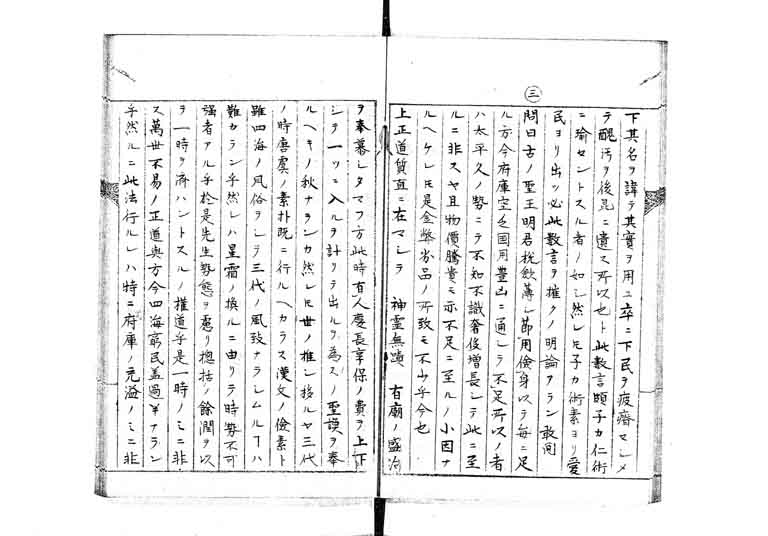 三
下其名ヲ諱テ其實ヲ用ニ卒ニ下民ヲ疲瘠マシメ
テ醜汚ヲ後昆ニ遺ス所以也ト此数言頗子カ仁術
ニ喩セントスル者ノ如シ然レ𪜈子カ術素ヨリ愛
民ヨリ出ツ必此数言ヲ摧クノ明論ヲラン敢問
問曰古ノ聖王明君税飲薄シ節用儉身以ラ毎ニ足
ル方今府庫空乏國用豊山ニ通シラ不足所以ノ者
ハ太平久ノ勢ニラ不知不識奢侈増長シテ此ニ至
ルニ非スヤ且物價騰貴モ亦不足ニ至ルノ小因ナ
ルヘケレ𪜈是金幣劣品ノ所致モ不少乎今也
上正道質直ニ在マシラ 神霊無 有廟ノ盛治
ヲ奉慕シタマフ方此時有人慶長享保ノ費ヲ上下
シラ一ツニ入ルヲ計リテ出ルヲ為スノ聖謨ヲ奉
ルヘキノ秋ナランカ然レ𪜈世ノ推シ移ルヤ三代
ノ時唐虞ノ素朴既ニ行ルヘカラス漢文ノ儉素ト
雖四海ノ風俗ヲシラ三代ノ風致ナラシムルヿハ
難カラン乎然レハ星霜ノ換ルニ由リテ時勢不可
強者アル乎於是先生勢態ヲ慮リ捴括ノ餘潤ヲ以
ヲ一時ヲ済ハントスルノ権道乎是一時ノミニ非
ス萬世不易ノ正道與方今四海窮民蓋過半ナラン
乎然ルニ此法行ルレハ特ニ府庫ノ充溢ノミニ非